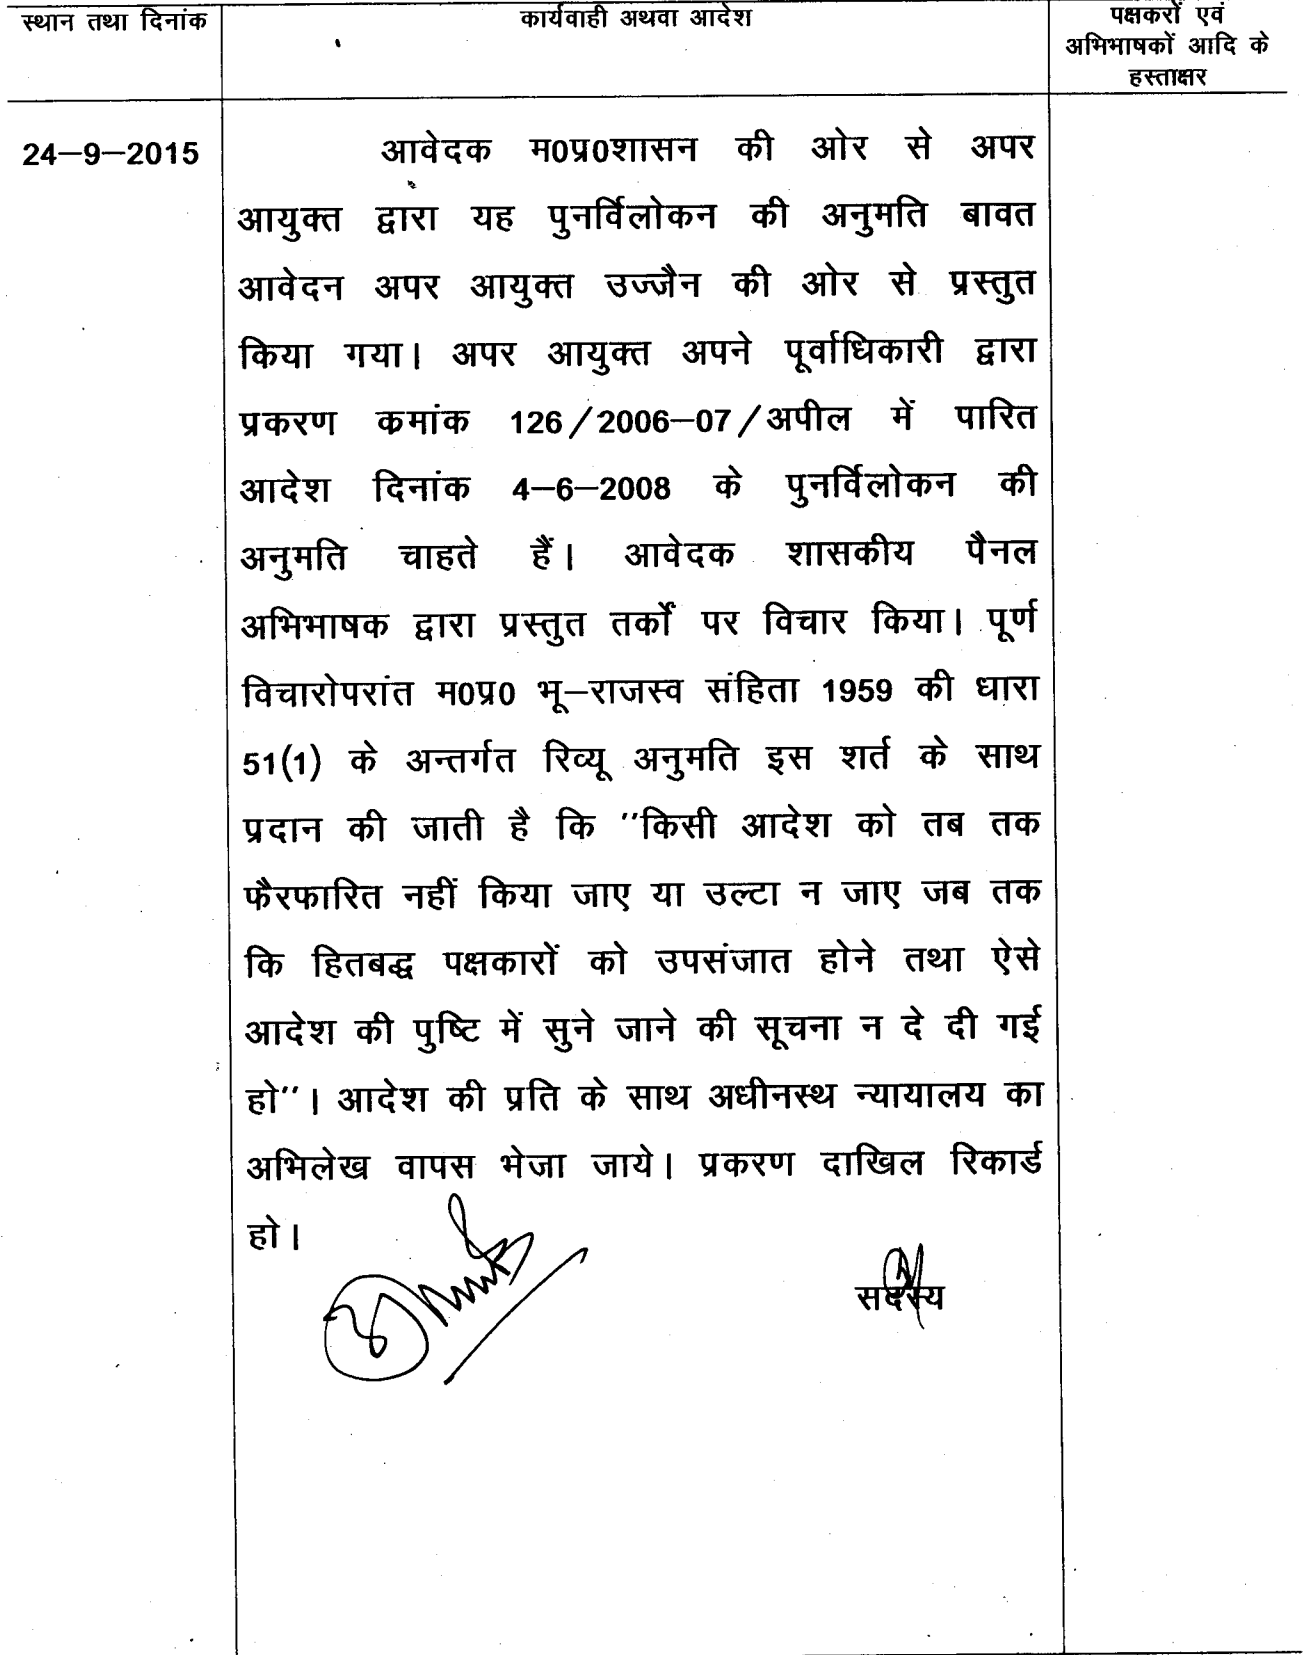 स्थान तथा दिनांक
कार्यवाही अथवा आदेश
पक्षकरों एवं
अभिभाषकों आदि के
हस्ताक्षर
24–9–2015
आवेदक म0प्र0शासन की ओर से अपर
आयुक्त द्वारा यह पुनर्विलोकन की अनुमति बावत
आवेदन अपर आयुक्त उज्जैन की ओर से प्रस्तुत
किया गया। अपर आयुक्त अपने पूर्वाधिकारी द्वारा
प्रकरण कमांक 126/2006–07/अपील में पारित
आदेश दिनांक 4–6–2008 के पुनर्विलोकन की
अनुमति चाहते हैं। आवेदक शासकीय पैनल
अभिभाषक द्वारा प्रस्तुत तर्कों पर विचार किया। पूर्ण
विचारोपरांत म0प्र0 भू–राजस्व संहिता 1959 की धारा
51(1) के अन्तर्गत रिव्यू अनुमति इस शर्त के साथ
प्रदान की जाती है कि ''किसी आदेश को तब तक
फैरफारित नहीं किया जाए या उल्टा न जाए जब तक
कि हितबद्ध पक्षकारों को उपसंजात होने तथा ऐसे
आदेश की पुष्टि में सुने जाने की सूचना न दे दी गई
हो''। आदेश की प्रति के साथ अधीनस्थ न्यायालय का
अभिलेख वापस भेजा जाये। प्रकरण दाखिल रिकार्ड
हो।
सदस्य